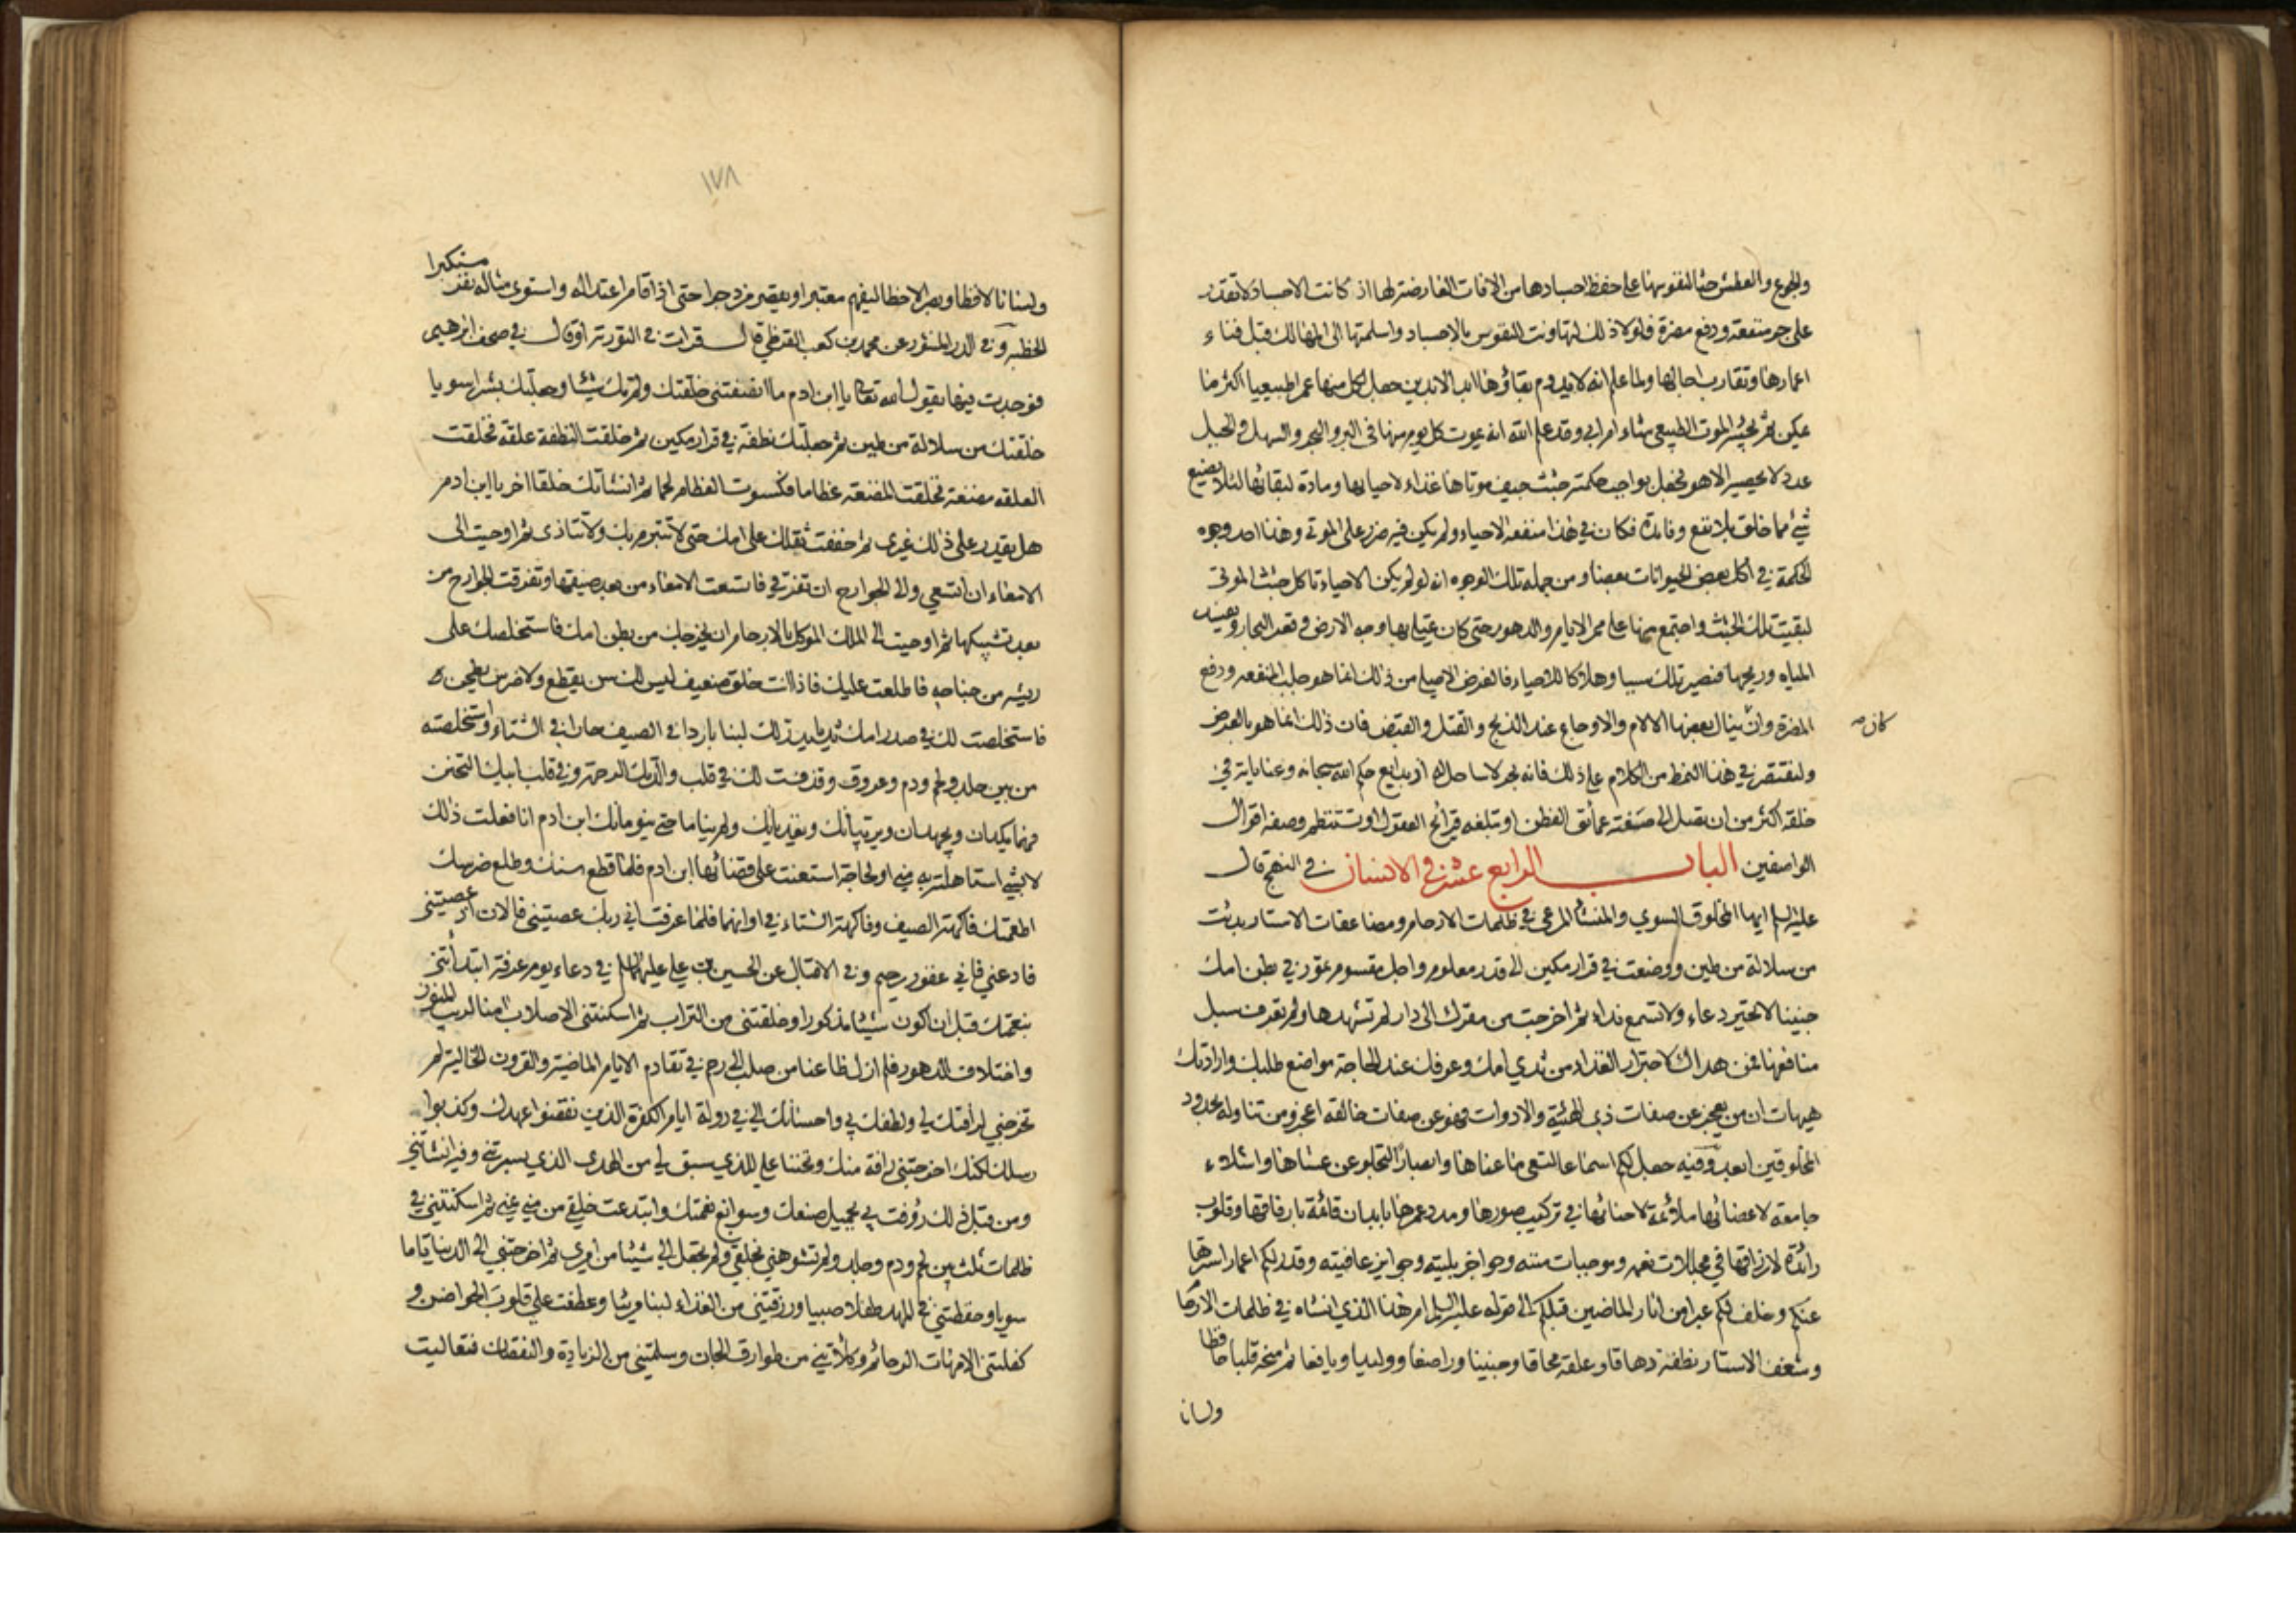 والجوع والعطش حثا لنفوسها على حفظ اجسادها من الافات العارضة لها اذ كانت الاجساد لا تقدر
على جر منفعة ودفع مضرة فلولا ذلك لتهاونت النفوس بالاجساد واسلمتها الى المهالك قبل فناء
اعمارها وتقارب اجالها ولما علم انه لا يدوم بقاؤها ابد الابدين جعل لكل منها عمرا طبيعيا اكثر ما
يمكن ثم يجيئه الموت الطبيعي شاء ام ابى وقد علم الله انه يموت كل يوم منها في البر والبحر والسهل والجبل
عدد لا يحصيه الا هو فجعل بواجب حكمته جثث جيف موتاها غذاء لاحيائها ومادة لبقائها لئلا يضيع
شيء مما خلق بلا نفع وفائدة فكان في هذا منفعة الاحياء ولم يكن فيه ضرر على الموتى وهذا احد وجوه
الحكمة في اكل بعض الحيوانات بعضا ومن جملة تلك الوجوه انه لو لم يكن الاحياء تاكل جثث الموتى
لبقيت تلك الجثث واجتمع منها على ممر الايام والدهور حتى كان يمتلي بها وجه الارض وقعر البحار ويفسد
المياه وريحها فتصير تلك سببا وهلاكا للاحياء فالغرض الاصلي من ذلك انما هو جلب المنفعة ودفع
المضرة وان ينال بعضها الالام والاوجاع عند الذبح والقتل والقبض فان ذلك انما هو بالعرض
كان صه
ولنقتصر في هذا النمط من الكلام على ذلك فانه بحر لا ساحل له اذ بدايع حكم الله سبحانه وعناياته في
خلقه اكثر من ان تصل الى صفته عمائق الفطن او تبلغه قرائح العقول او تستنظم وصفه اقوال
الواصفين الباب الرابع عشر في الانسان في النهج قال
عليه السلم ايها المخلوق السوي والمنشأ المرعي في ظلمات الارحام ومضاعفات الاستار بدئت
من سلالة من طين ووضعت في قرار مكين الى قدر معلوم واجل مقسوم تمور في بطن امك
جنينا لا تحير دعاء ولا تسمع نداء ثم اخرجت من مقرك الى دار لم تشهدها ولم تعرف سبل
منافعها فمن هداك لاجترار الغذاء من ثدي امك وعرفك عند الحاجة مواضع طلبك وارادتك
هيهات ان من يعجز عن صفات ذي الهيئة والادوات فهو عن صفات خالقه اعجز ومن تناوله بحدود
المخلوقين ابعد وفيه جعل لكم اسماعا لتعي ما عناها وابصارا لتجلو عن عشاها واشلاء
جامعة لاعضائها ملائمة لاحنائها في تركيب صورها ومدد عمرها بابدان قائمة بارفاقها وقلوب
رائدة لارزاقها في مجللات نعمه وموجبات مننه وحواجز بليته وجوايز عافيته وقدر لكم اعمارا سترها
عنكم وخلف لكم عبرا من اثار الماضين قبلكم الى قوله عليه السلم ام هذا الذي انشاه في ظلمات الارحا
وشغف الاستار نطفة دهاقا وعلقة محاقا وجنينا وراضعا ووليدا ويافعا ثم منحه قلبا حافظا
ولسانا
١٧٨
ولسانا لافظا وبصرا لاحظا ليفهم معتبرا ويقصر مزدجرا حتى اذا قام اعتداله واستوى مثاله نفر مستكبرا
الخطبه وفي الدر المنثور عن محمد بن كعب القرظي قال قرات في التورية او قال في صحف ابرهيم
فوجدت فيها يقول الله تعالى يا ابن ادم ما انصفتني خلقتك ولم تك شيئا وجعلتك بشرا سويا
خلقتك من سلالة من طين ثم جعلتك نطفة في قرار مكين ثم خلقت النطفة علقة فخلقت
العلقه مضغة فخلقت المضغة عظاما فكسوت العظام لحما ثم انشاتك خلقا اخر يا ابن ادم
هل يقدر على ذلك غيري ثم خففت ثقلك على امك حتى لا تتبرم بك ولا تتاذى ثم اوحيت الى
الامعاء ان اتسعي والى الجوارح ان تفرقي فاتسعت الامعاء من بعد ضيقها وتفرقت الجوارح من
بعد تشبيكها ثم اوحيت الى الملك الموكل بالارحام ان يخرجك من بطن امك فاستخلصك على
ريشه من جناحه فاطلعت عليك فاذا انت خلق ضعيف ليس لك سن يقطع ولا ضرس يطحن
فاستخلصت لك في صدر امك ثديا يدر لك لبنا باردا في الصيف حارا في الشتاء واستخلصته
من بين جلد ولحم ودم وعروق وقذفت لك في قلب والدتك الرحمة وفي قلب ابيك التحنن
فهما يكدان ويجهدان ويربيانك ويغذيانك ولم يناما حتى ينومانك ابن ادم انا فعلت ذلك
لا لشيء استاهلته به مني او لحاجة استعنت على قضائها ابن ادم فلما قطع سنك وطلع ضرسك
اطعمتك فاكهة الصيف وفاكهة الشتاء في اوانهما فلما عرفت اني ربك عصيتني فالان اذ عصيتني
فادعني فاني غفور رحيم وفي الاقبال عن الحسين بن علي عليهما السلم في دعاء يوم عرفة ابتدأتني
بنعمتك قبل ان اكون شيئا مذكورا وخلقتني من التراب ثم اسكنتني الاصلاب امنا لريب المنون
واختلاف الدهور فلم ازل ظاعنا من صلب الى رحم في تقادم الايام الماضية والقرون الخالية لم
تخرجني لرأفتك لي ولطفك بي واحسانك الي في دولة ايام الكفرة الذين نقضوا عهدك وكذبوا
رسلك لكنك اخرجتني رافة منك وتحننا علي للذي سبق لي من الهدى الذي يسرتني وفيه انشاتني
ومن قبل ذلك رؤفت بي بجميل صنعك وسوابغ نعمتك وابتدعت خلقي من مني يمنى ثم اسكنتني في
ظلمات ثلث بين لحم ودم وجلد ولم تشوهني بخلقي ولم تجعل الي شيئا من امري ثم اخرجتني الى الدنيا تاما
سويا وحفظتني في المهد طفلا صبيا ورزقتني من الغذاء لبنا مريئا وعطفت علي قلوب الحواضن و
كفلتني الامهات الرحائم وكلأتني من طوارق الجان وسلمتني من الزيادة والنقصان فتعاليت